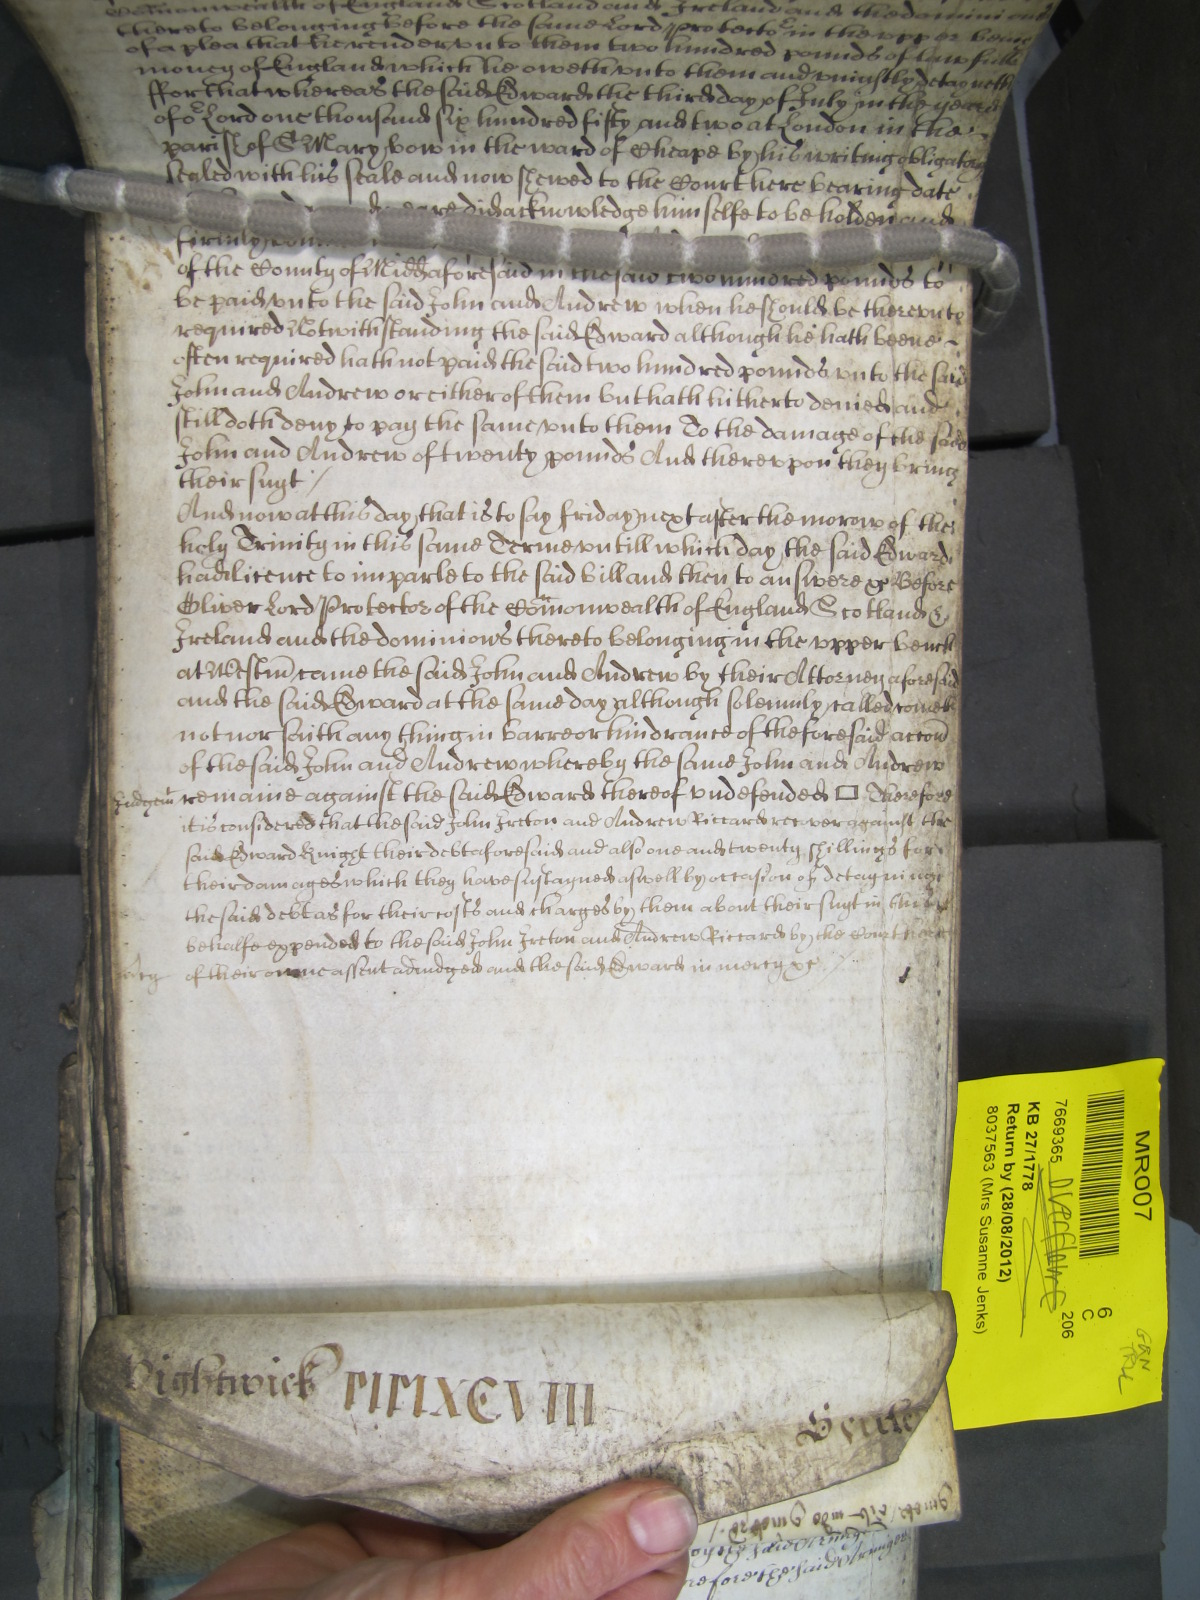 Commonwealth of England Scotland and Ireland and the dominions
thereto belonging before the same Lord Protector in the upper bench
of a plea that he render unto them two hundred pounds of lawfull
money of England which he oweth unto them and uniustly detayneth
ffor that whereas the said Edward the third day of July in the yeare
of or Lord one thousand six hundred fifty and two at London in the
parish of St Mary bow in the ward of Cheape by his writing obligatory
sealed with his seale and now shewed to the Court here bearing date
did acknowledge himselfe to be holden and
firmly
of the County of Midd aforesaid in the said two hundred pounds to
be paid unto the said John and Andrew when he should be thereunto
required Notwithstanding the said Edward although he hath beene
often required hath not paid the said two hundred pounds unto the said
John and Andrew or either of them but hath hitherto denied and
still doth deny to pay the same unto them To the damage of the said
John and Andrew of twenty pounds And thereupon they bring
their suyt /
And now at this day that is to say friday next after the morow of the
holy Trinity in this same Terme untill which day the said Edward
had licence to imparle to the said bill and then to answere &c Before
Oliver Lord Protector of the Comonwealth of England Scotland &
Ireland and the dominions thereto belonging in the upper bench
at Westm came the said John and Andrew by their Attorney aforesaid
and the said Edward at the same day although solemnly called cometh
not nor saith any thing in barre or hindrance of the foresaid accon
of the said John and Andrew whereby the same John and Andrew
Judgem remaine against the said Edward thereof undefended Therefore
it is considered that the said John Ireton and Andrew Riccard recover against the
said Edward Knight their debt aforesaid and also one and twenty shillings for
their damages which they have sustayned aswell by occasion of detayning
the said debt as for their costs and charges by them about their suyt in this
behalfe expended to the said John Ireton and Andrew Riccard by the Court here
mercy of their owne assent adiudged and the said Edward in mercy &c /
Hightwick MMMXCVIII
MR007
6
C
7669365 206
KB 27/1778
Return by (28/08/2012)
8037563 (Mrs Susanne Jenks)